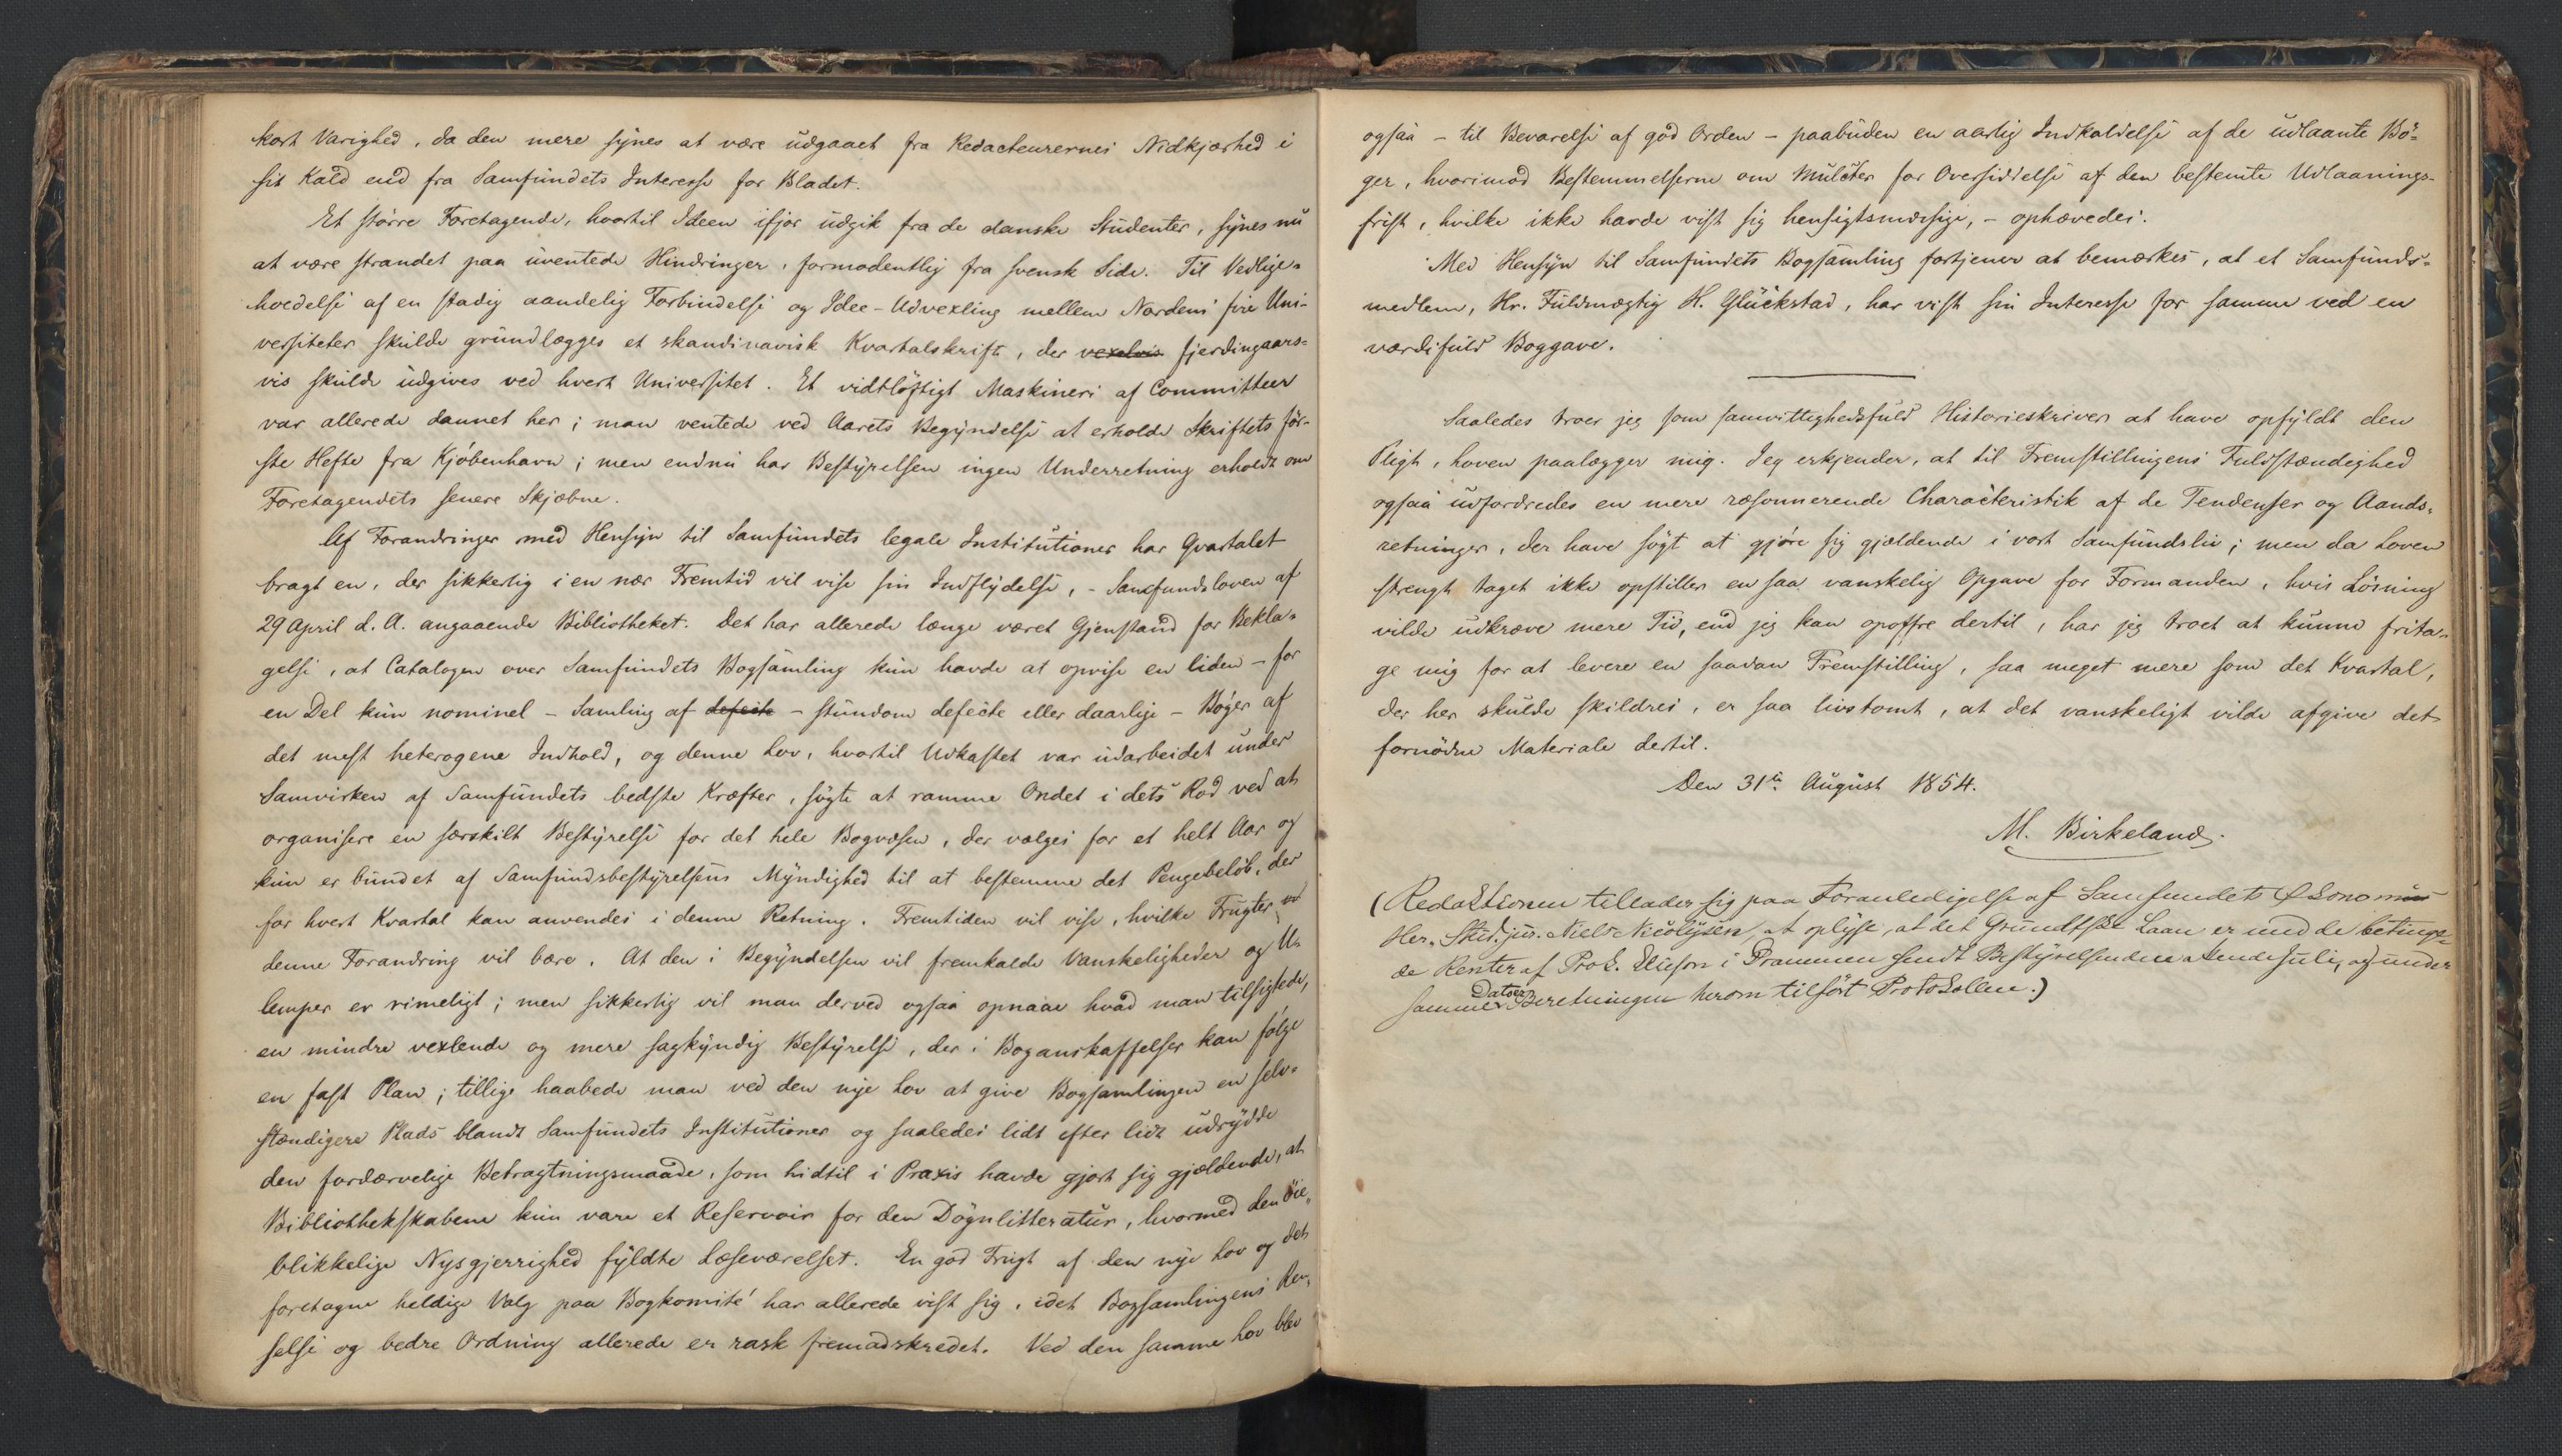 kort Varighed, da den mere synes at være udgaaet fra Redacteurernes Nidkjærhed i
sit Kald end fra Samfundets Interesse for Bladet.
Et større Foretagende, hvortil Ideen ifjor udgik fra de danske Studenter, synes nu
at være strandet paa uventede Hindringer, formodentlig fra svensk Side. Til Vedlige-
hvedelse af en stadig aandelig Forbindelse og Idee-Udvexling mellem Nordens fire Uni-
versiteter skulde grundlægges et skandinavisk Kvartalskrift, der vexelvis fjerdingaars-
vis skulde udgives ved hvert Universitet. Et vidtløftigt Maskineri af Committeer
var allerede dannet her; man ventede ved Aarets Begyndelse at erholde Skriftets før-
ste Hefte fra Kjøbenhavn; men endnu har Bestyrelsen ingen Underretning erholdt om
Foretagendets senere Skjæbne.
Af Forandringer med Hensyn til Samfundets legale Institutioner har Qvartalet
bragt en, der sikkerlig i en nær Fremtid vil vise sin Indflydelse, - Samfundsloven af
29 April d. A. angaaende Bibliotheket. Det har allerede længe været Gjenstand for Bekla-
gelse, at Catalogen over Samfundets Bogsamling kun havde at opvise en liden - for
en Del kun nominel - Samling af defecte - stundom defecte eller daarlige - Bøger af
det mest heterogene Indhold, og denne Lov, hvortil Udkastet var udarbeidet under
Samvirken af Samfundets bedste Kræfter, søgte at ramme Ondet i dets Rod ved at
organisere en særskilt Bestyrelse for det hele Bogvæsen, der vælges for et helt Aar og
kun er bundet af Samfundsbestyrelsens Myndighed til at bestemme det Pengebeløb, der
for hvert Kvartal kan anvendes i denne Retning. Fremtiden vil vise, hvilke Frugter
denne Forandring vil bære. At den i Begyndelsen vil fremkalde Vanskeligheder og U-
lemper er rimeligt; men sikkerlig vil man derved ogsaa opnaae hvad man tilsigtede,
en mindre vexlende og mere sagkyndig Bestyrelse, der i Boganskaffelser kan følge
en fast Plan; tillige haabede man ved den nye Lov at give Bogsamlingen en selv-
stændigere Plads blandt Samfundets Institutioner og saaledes lidt efter lidt udrydde
den fordærvelige Betragtningsmaade, som hidtil i Praxis havde gjort sig gjældende, at
Bibliothekskabene kun vare et Reservoir for den Døgnlitteratur, hvormed den øie-
blikkelige Nysgjerrighed fyldte Læseværelset. En god Frugt af den nye Lov og det
foretagne heldige Valg paa Bogkomité har allerede vist sig, idet Bogsamlingens Ren-
selse og bedre Ordning allerede er rask fremadskredet. Ved den samme Lov blev
ogsaa - til Bevarelse af god Orden - paabuden en aarlig Indkaldelse af de udlaante Bø-
ger, hvorimod Bestemmelserne om Mulcter for Oversiddelse af den bestemte Udlaanings-
frist, hvilke ikke havde vist sig hensigtsmæssige, - ophævedes.
Med Hensyn til Samfundets Bogsamling fortjener at bemærkes, at et Samfunds-
medlem, Hr. Fuldmægtig H. Glückstad, har vist sin Interesse for samme ved en
værdifuld Boggave.
Saaledes troer jeg som samvittighedsfuld Historieskriver at have opfyldt den
Pligt, Loven paalægger mig. Jeg erkjender, at til Fremstillingens Fuldstændighed
ogsaa udfordredes en mere ræsonnerende Characteristik af de Tendenser og Aands-
retninger, der have søgt at gjøre sig gjældende i vort Samfundsliv; men da Loven
strengt taget ikke opstiller en saa vanskelig Opgave for Formanden, hvis Løsning
vilde udkræve mere Tid, end jeg kan opoffre dertil, har jeg troet at kunne frita-
ge mig for at levere en saadan Fremstilling, saa meget mere som det Kvartal,
der her skulde skildres, er saa livstomt, at det vanskeligt vilde afgive det
fornødne Materiale dertil.
Den 31te August 1854.
M. Birkeland.
(Redaktionen tillader sig paa Foranledigelse af Samfundets Økonomus
Hr. Stud. jur. Niels Nicolysen, at oplyse, at det Grundtske Laan er med de betinge-
de Renter af Prok. Eliesen i Drammen sendt Bestyrelsen den Juli, og under
samme Dato er Beretningen herom tilført Protokollen.)